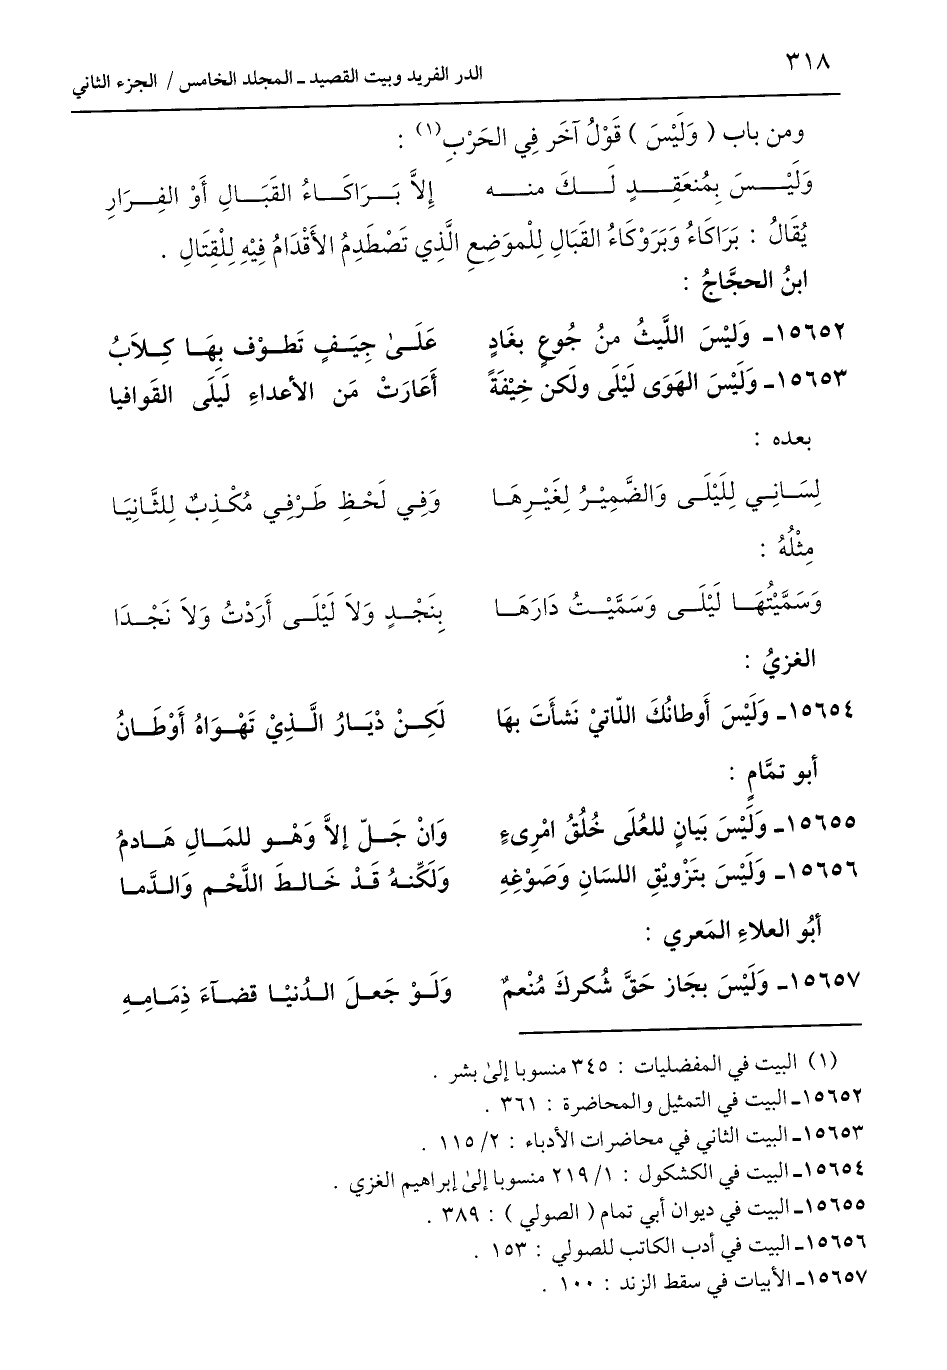 ٣١٨
الدر الفريد وبيت القصيد ـ المجلد الخامس / الجزء الثاني
ومن باب ( وَلَيْسَ ) قَوْلُ آخَر فِي الحَرْبِ(١) :
وَلَيْسَ بِمُنعَقِدٍ لَكَ منه إِلاَّ بَرَاكَاءُ القَبَالِ أَوْ الفِرَارِ
يُقَالُ : بَرَاكَاءُ وَبَرَوْكَاءُ القَبَالِ لِلْموَضِعِ الَّذِي تَصْطَدِمُ الأَقْدَامُ فِيْهِ لِلْقِتَالِ .
ابنُ الحجَّاجُ :
١٥٦٥٢ـ وَلَيْسَ اللَّيثُ منُ جُوعٍ بغَادٍ عَلَىٰ جِيَفٍ تَطوْف بِهَا كِلاَبُ
١٥٦٥٣ـ وَلَيْسَ الهَوَى لَيْلَى ولَكن خِيْفَةً أَعَارَتْ مَن الأعداءِ لَيلَى القَوافيا
بعده :
لِسَانِي لِلَيْلَى وَالضَّمِيْرُ لِغَيْرِهَا وَفِي لَحْظِ طَرْفِي مُكْذِبٌ لِلثَّانِيَا
مِثْلُهُ :
وَسَمَّيْتُهَا لَيْلَى وَسَمَّيْتُ دَارَهَا بِنَجْدٍ وَلاَ لَيْلَى أَرَدْتُ وَلاَ نَجْدَا
الغزيُ :
١٥٦٥٤ـ وَلَيْسَ أَوطانُكَ اللّاتيْ نَشأتَ بهَا لَكِنْ دْيَارُ الَّذِيْ تَهْوَاهُ أَوْطَانُ
أبو تمَّامٍ :
١٥٦٥٥ـ وَلَيْسَ بَيَانٍ للعُلَى خُلُقُ امْرِىءٍ وَانْ جَلّ إلاَّ وَهْو للمَالِ هَادمُ
١٥٦٥٦ـ وَلَيْسَ بتَزْويْقِ اللسَانِ وَصَوْغِهِ وَلَكِّنهُ قَدْ خَالطَ اللَّحْم وَالدَّما
أبُو العلاءِ المَعري :
١٥٦٥٧ـ وَلَيْسَ بجَاز حَقَّ شُكركَ مُنْعمٌ وَلَوْ جَعلَ الدُنيْا قضَآءَ ذِمَامِهِ
(١) البيت في المفضليات : ٣٤٥ منسوبا إلىٰ بشر .
١٥٦٥٢ـ البيت في التمثيل والمحاضرة : ٣٦١ .
١٥٦٥٣ـ البيت الثاني في محاضرات الأدباء : ٢/ ١١٥ .
١٥٦٥٤ـ البيت في الكشكول : ١/ ٢١٩ منسوبا إلىٰ إبراهيم الغزي .
١٥٦٥٥ـ البيت في ديوان أبي تمام ( الصولي ) : ٣٨٩ .
١٥٦٥٦ـ البيت في أدب الكاتب للصولي : ١٥٣ .
١٥٦٥٧ـ الأبيات في سقط الزند : ١٠٠ .